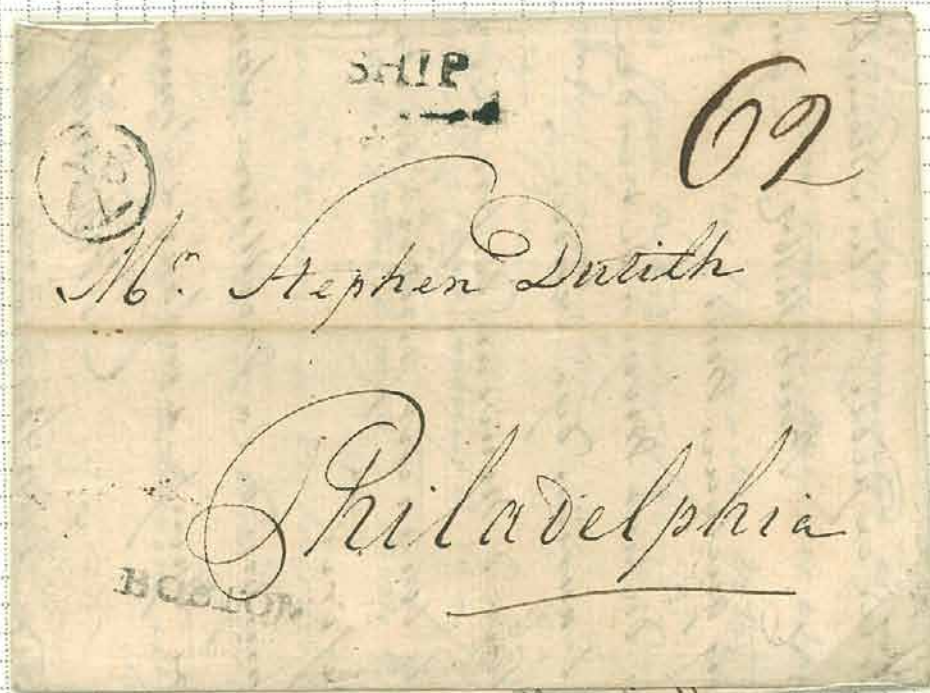 SHIP
62
Mr. Stephen Dutilh
Philadelphia
BOSTON